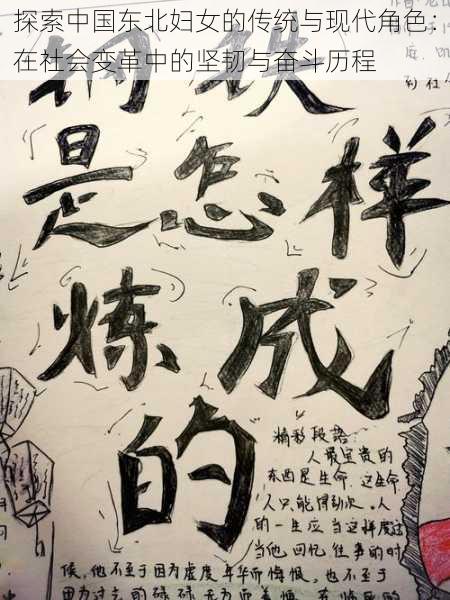 探索中国东北妇女的传统与现代角色：
在社会变革中的坚韧与奋斗历程
钢铁
是怎样
炼成
的
精彩段落：
人最宝贵的
东西是生命.这生命
人只能得到一次.人
的一生应当这样度过
当他回忆往事的时
候，他不至于因为虚度年华而悔恨，也不至于
因为过去的碌碌无为而羞愧